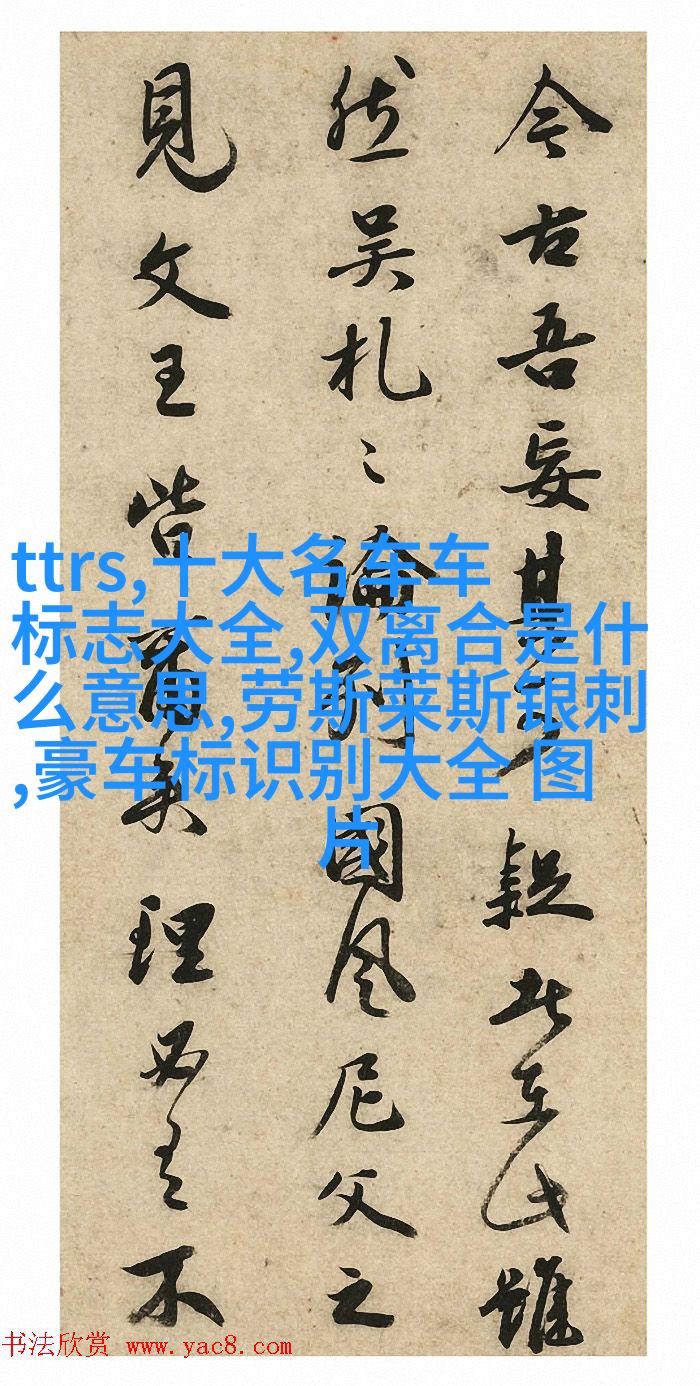 今古吾妄甚疑在此雖
然吴札〻論列國风尼父之
見文王皆矣理必有不
ttrs,十大名车车
标志大全,双离合是什
么意思,劳斯莱斯银刺
,豪车标识别大全 图
片
书法欣赏 www.yac8.com